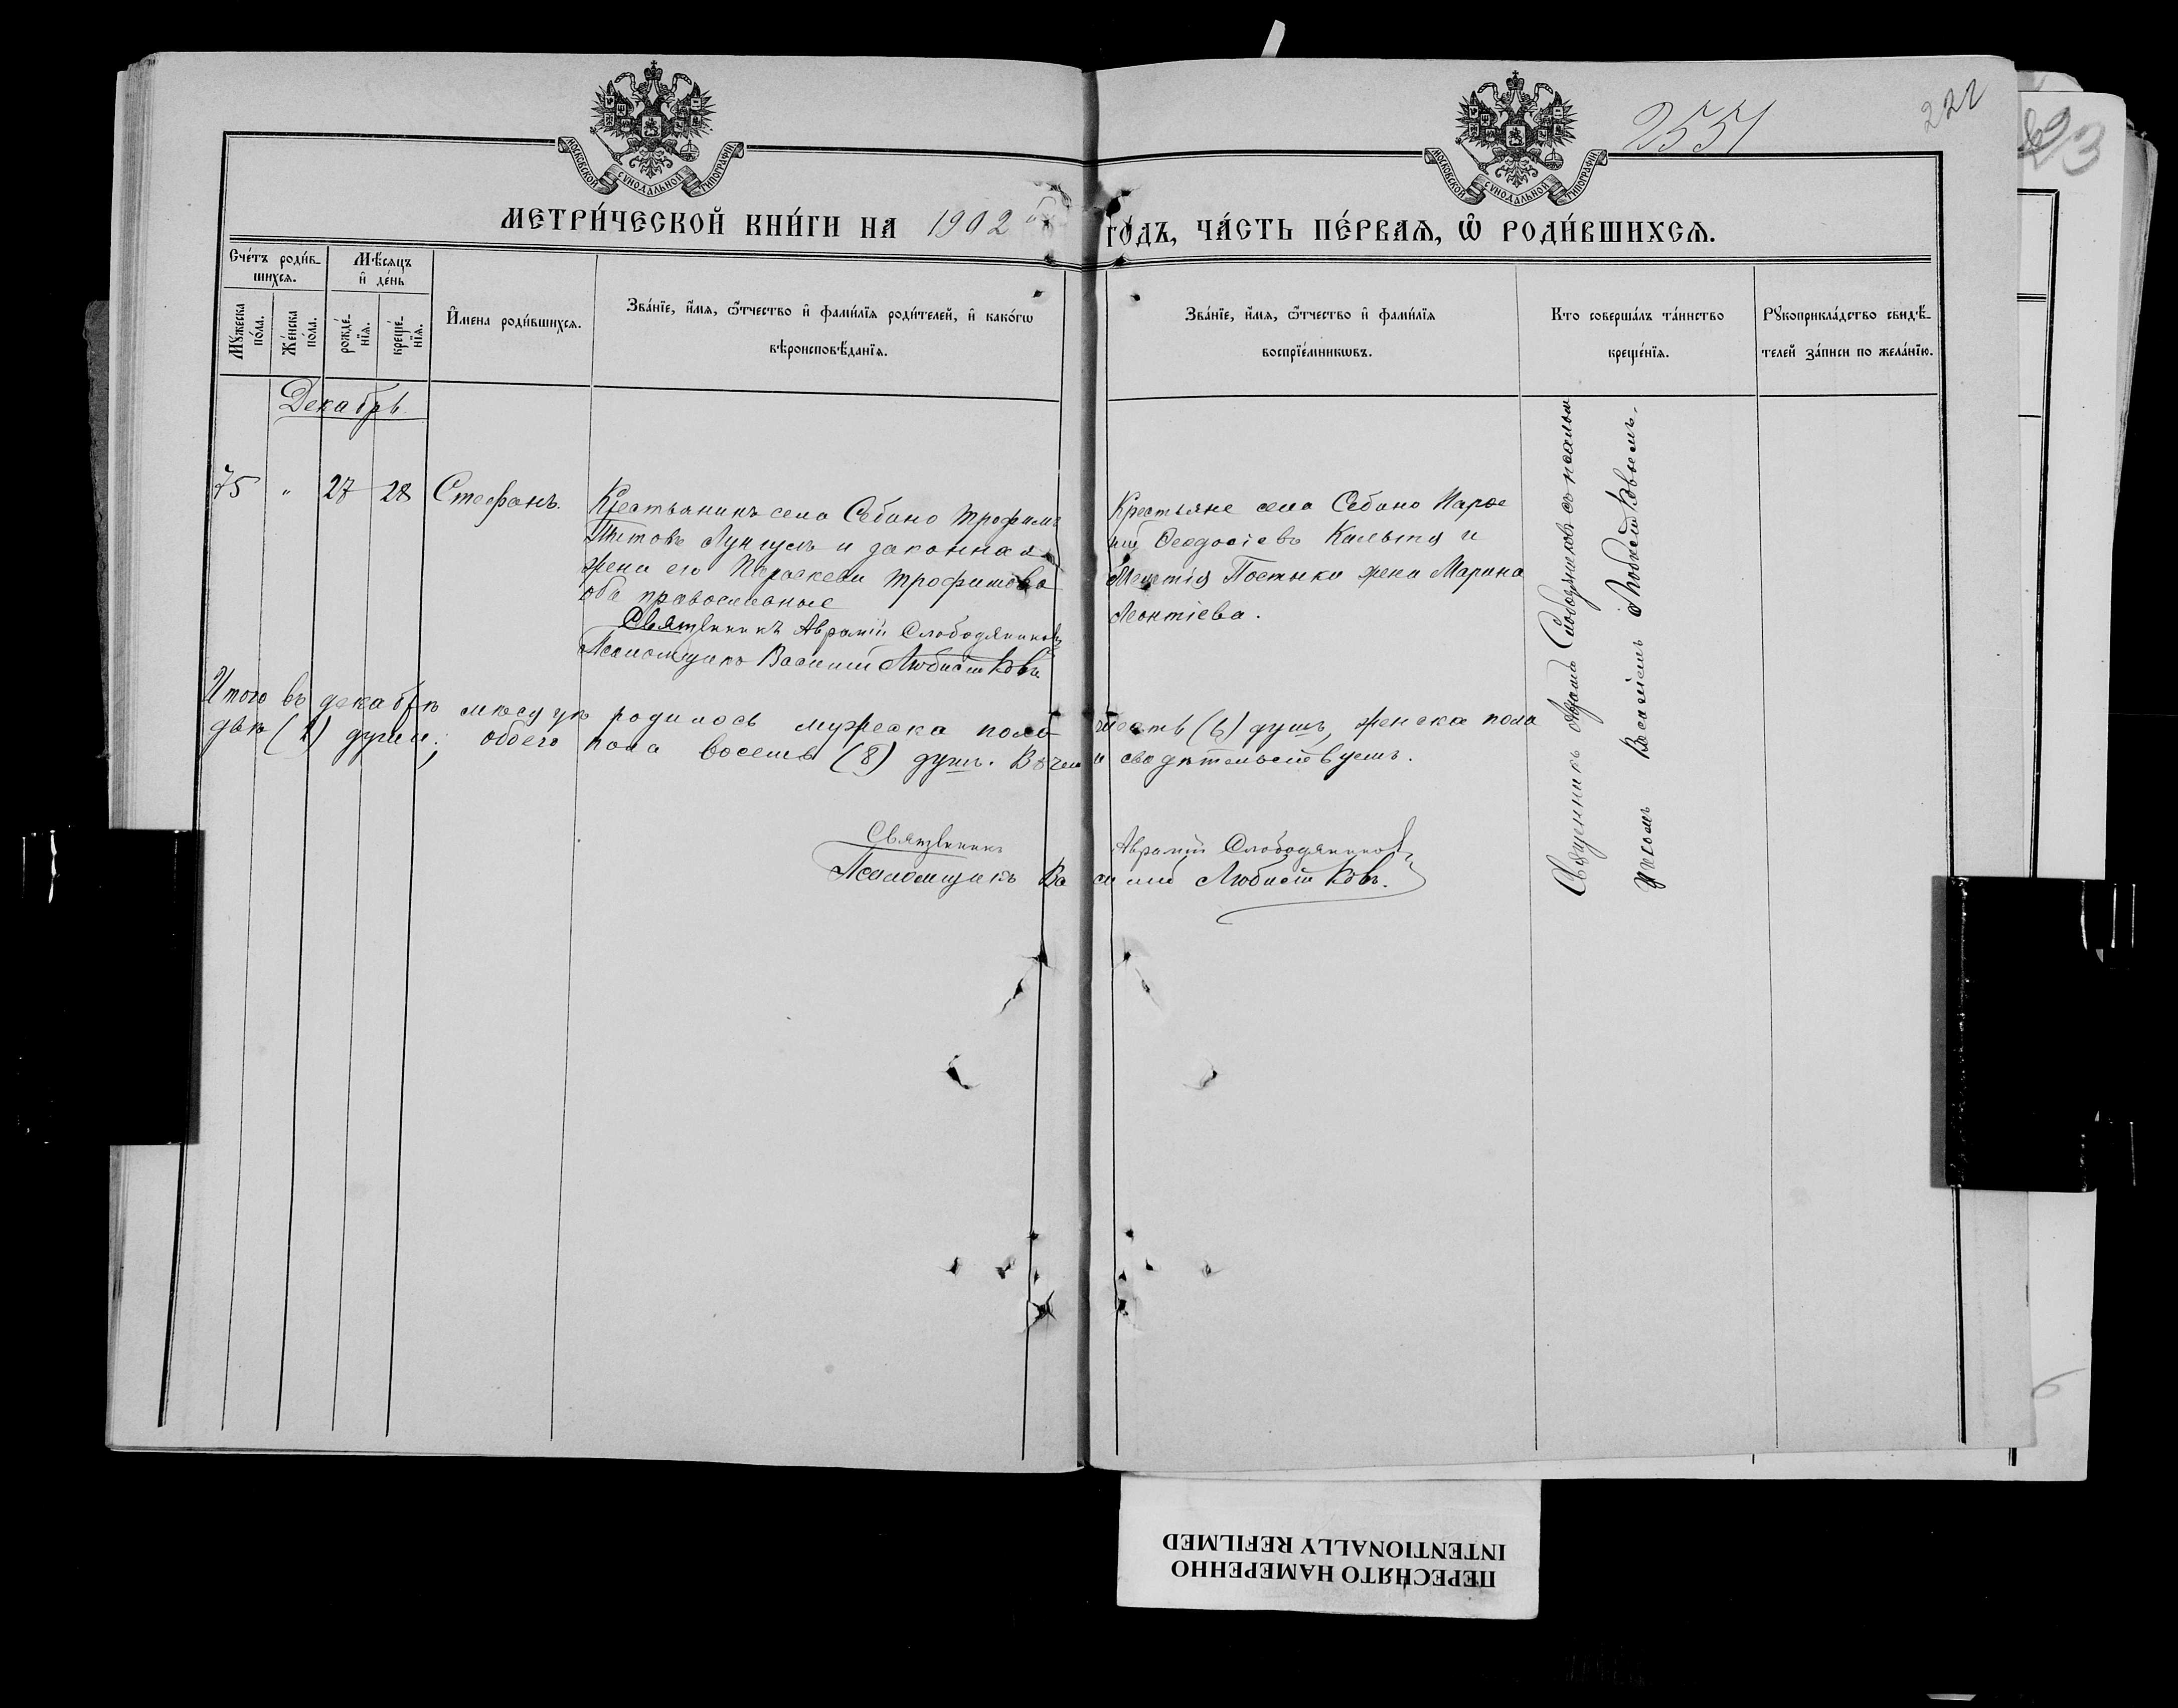 2551
222
23
МОСКОВСКОЙ СѴНОДАЛЬНОЙ ТИПОГРАФІИ
МОСКОВСКОЙ СѴНОДАЛЬНОЙ ТИПОГРАФІИ
МЕТРИ́ЧЕСКОЙ КНИ́ГИ НА 1902 й ГО́ДЪ, ЧА́СТЬ ПЕ́РВАѦ, Ѽ РОДИ́ВШИХСѦ.
Сче́тъ роди́в-
шихсѧ.
Мꙋ́жеска
по́ла.
Же́нска
по́ла.
Мѣ́сѧцъ
и҆ де́нь
рожде́-
нїѧ.
креще́-
нїѧ.
И҆мена роди́вшихсѧ.
Зва́нїе, и҆́мѧ, ѻ҆́тчество и҆ фами́лїѧ роди́телей, и҆ како́гѡ
вѣроисповѣ́данїѧ.
Зва́нїе, и҆́мѧ, ѻ҆́тчество и҆ фами́лїѧ
воспрїе́мникѡвъ.
Кто соверша́лъ та́инство
креще́нїѧ.
Рꙋкоприкла́дство свидѣ́-
телей за́писи по жела́нїю.
Декабрь.
75 " 27 28 Стефанъ.
Крестьянинъ села Собано Трофимъ
Титовъ Лунгулъ и законная
жена его Параскева Трофимова
оба православные
Священникъ Аврамій Слободяниковъ
Псаломщикъ Василій Любистковъ
Крестьяне села Собано
Ѳеодосіевъ и
жена Марина
Леонтіева.
Священникъ Аврамій Слободяниковъ съ псалом
щикомъ Василіемъ Любистковымъ.
Итого въ декабрѣ месяцѣ родилось мужеска пола шесть (6) душъ, женска пола
двѣ (2) души; обоего пола восемь (8) душъ. Въ чемъ и свидѣтельствуемъ.
Священникъ Аврамій Слободяниковъ
Псаломщикъ Василій Любистковъ.
ПЕРЕСНЯТО НАМЕРЕННО
INTENTIONALLY REFILMED